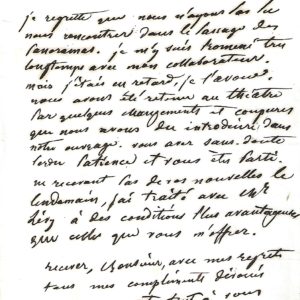 je regrette que nous n'ayons pas pu
nous rencontrer dans le passage des
panoramas. je m'y suis promené très
longtemps avec mon collaborateur.
mais j'étais en retard, je l'avoue.
nous avons été retenus au théâtre
par quelques changements et coupures
que nous avons dû introduire dans
notre ouvrage. vous avez sans doute
perdu patience et vous êtes parti.
ne recevant pas de vos nouvelles le
lendemain, j'ai traité avec Mr
Lévy à des conditions plus avantageuses
que celles que vous m'offrez.
recevez, Monsieur, avec mes regrets
tous mes compliments dévoués
et à vous